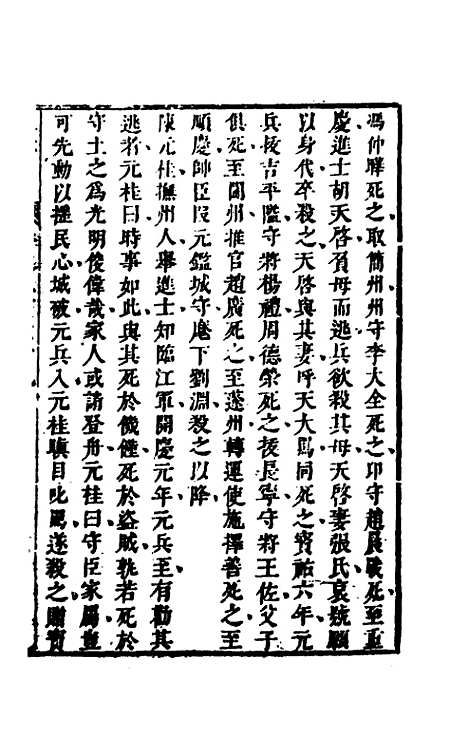 馮仲驛死之取簡州州守李大全死之卭守趙晨戰死至重
慶進士胡天啓負母而逃兵欲殺其母天啓妻張氏哀號願
以身代卒殺之天啓與其妻呼天大罵同死之寳祐六年元
兵拔吉平隘守將楊禮周德榮死之拔長寧守將王佐父子
俱死至閬州推官趙廣死之至蓬州轉運使施擇善死之至
順慶帥臣叚元鑑城守麾下劉淵殺之以降
陳元桂撫州人舉進士知臨江軍開慶元年元兵至有勸其
逃者元桂曰時事如此與其死於饑饉死於盜賊孰若死於
守土之爲光明俊偉哉家人或請登舟元桂曰守臣家屬豈
可先動以揺民心城破元兵入元桂瞋目叱罵遂殺之贈寳